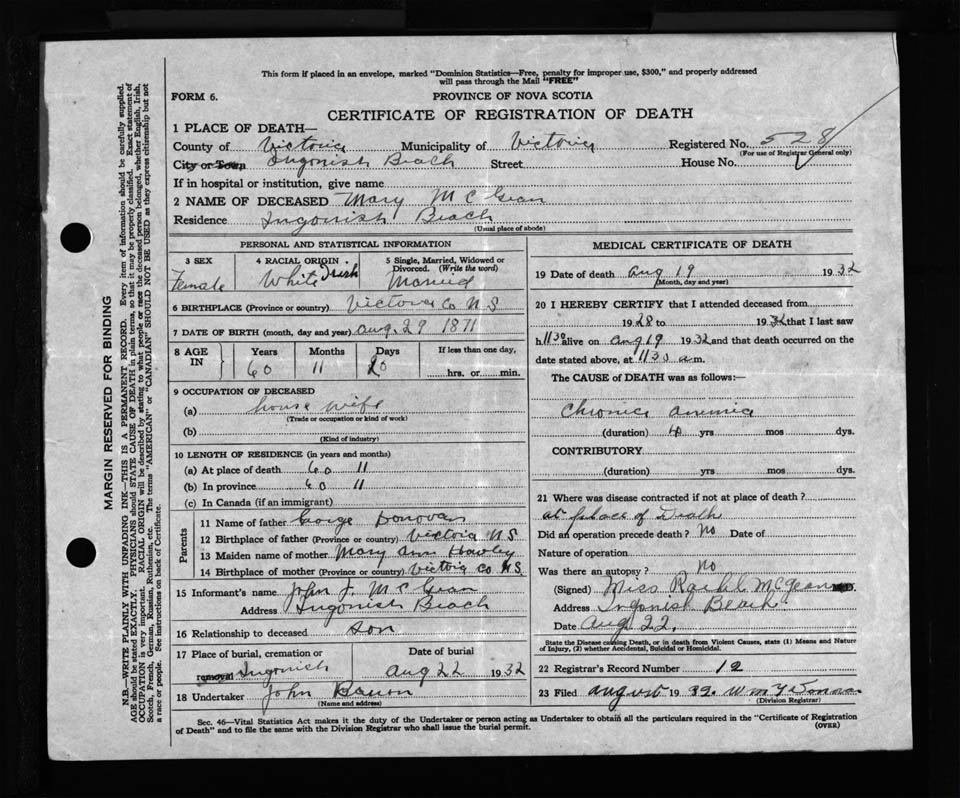 This form if placed in an envelope, marked "Dominion Statistics—Free, penalty for improper use, $300," and properly addressed
will pass through the Mail "FREE"
FORM 6.
PROVINCE OF NOVA SCOTIA
CERTIFICATE OF REGISTRATION OF DEATH
1 PLACE OF DEATH—
County of Victoria Municipality of Victoria Registered No. 528
(For use of Registrar General only)
City or Town Ingonish Beach Street House No.
If in hospital or institution, give name
2 NAME OF DECEASED Mary McGean
Residence Ingonish Beach
(Usual place of abode)
PERSONAL AND STATISTICAL INFORMATION
3 SEX 4 RACIAL ORIGIN 5 Single, Married, Widowed or Divorced. (Write the word)
Female White Irish Married
6 BIRTHPLACE (Province or country) Victoria Co N S
7 DATE OF BIRTH (month, day and year) Aug. 29 1871
8 AGE IN Years Months Days If less than one day,
60 11 20 hrs. or min.
9 OCCUPATION OF DECEASED
(a) house wife
(Trade or occupation or kind of work)
(b)
(Kind of industry)
10 LENGTH OF RESIDENCE (in years and months)
(a) At place of death 60 11
(b) In province 60 11
(c) In Canada (if an immigrant)
Parents
11 Name of father George Donovan
12 Birthplace of father (Province or country) Victoria N S
13 Maiden name of mother Mary Ann Hawley
14 Birthplace of mother (Province or country) Victoria Co N.S.
15 Informant's name John J. McGean
Address Ingonish Beach
16 Relationship to deceased son
17 Place of burial, cremation or removal Date of burial
Ingonish Aug 22 1932
18 Undertaker John
(Name and address)
MEDICAL CERTIFICATE OF DEATH
19 Date of death Aug 19 1932
(Month, day and year)
20 I HEREBY CERTIFY that I attended deceased from
1928 to 1932 that I last saw
h alive on Aug 19 1932 and that death occurred on the
date stated above, at 1130 a.m.
The CAUSE of DEATH was as follows:
Chronic anemia
(duration) 4 yrs mos dys.
CONTRIBUTORY
(duration) yrs mos dys.
21 Where was disease contracted if not at place of death?
at place of Death
Did an operation precede death? No Date of
Nature of operation
Was there an autopsy? No
(Signed) Miss McGean
Address Ingonish Beach
Date Aug 22,
State the Disease causing Death, or in death from Violent Causes, state (1) Means and Nature
of Injury, (2) whether Accidental, Suicidal or Homicidal.
22 Registrar's Record Number 12
23 Filed August 1932. Wm
(Division Registrar)
Sec. 46—Vital Statistics Act makes it the duty of the Undertaker or person acting as Undertaker to obtain all the particulars required in the "Certificate of Registration
of Death" and to file the same with the Division Registrar who shall issue the burial permit.
(OVER)
MARGIN RESERVED FOR BINDING
N.B.—WRITE PLAINLY WITH UNFADING INK—THIS IS A PERMANENT RECORD. Every item of information should be carefully supplied.
AGE should be stated EXACTLY. PHYSICIANS should STATE CAUSE OF DEATH in plain terms, so that it may be properly classified. Exact statement of
OCCUPATION is very important. RACIAL ORIGIN will be described by stating to what people or race the deceased person belonged, whether English, Irish,
Scotch, French, German, Russian, Ruthenian, etc. The terms "AMERICAN" or "CANADIAN" SHOULD NOT BE USED as they express citizenship but not
a race or people. See instructions on back of Certificate.